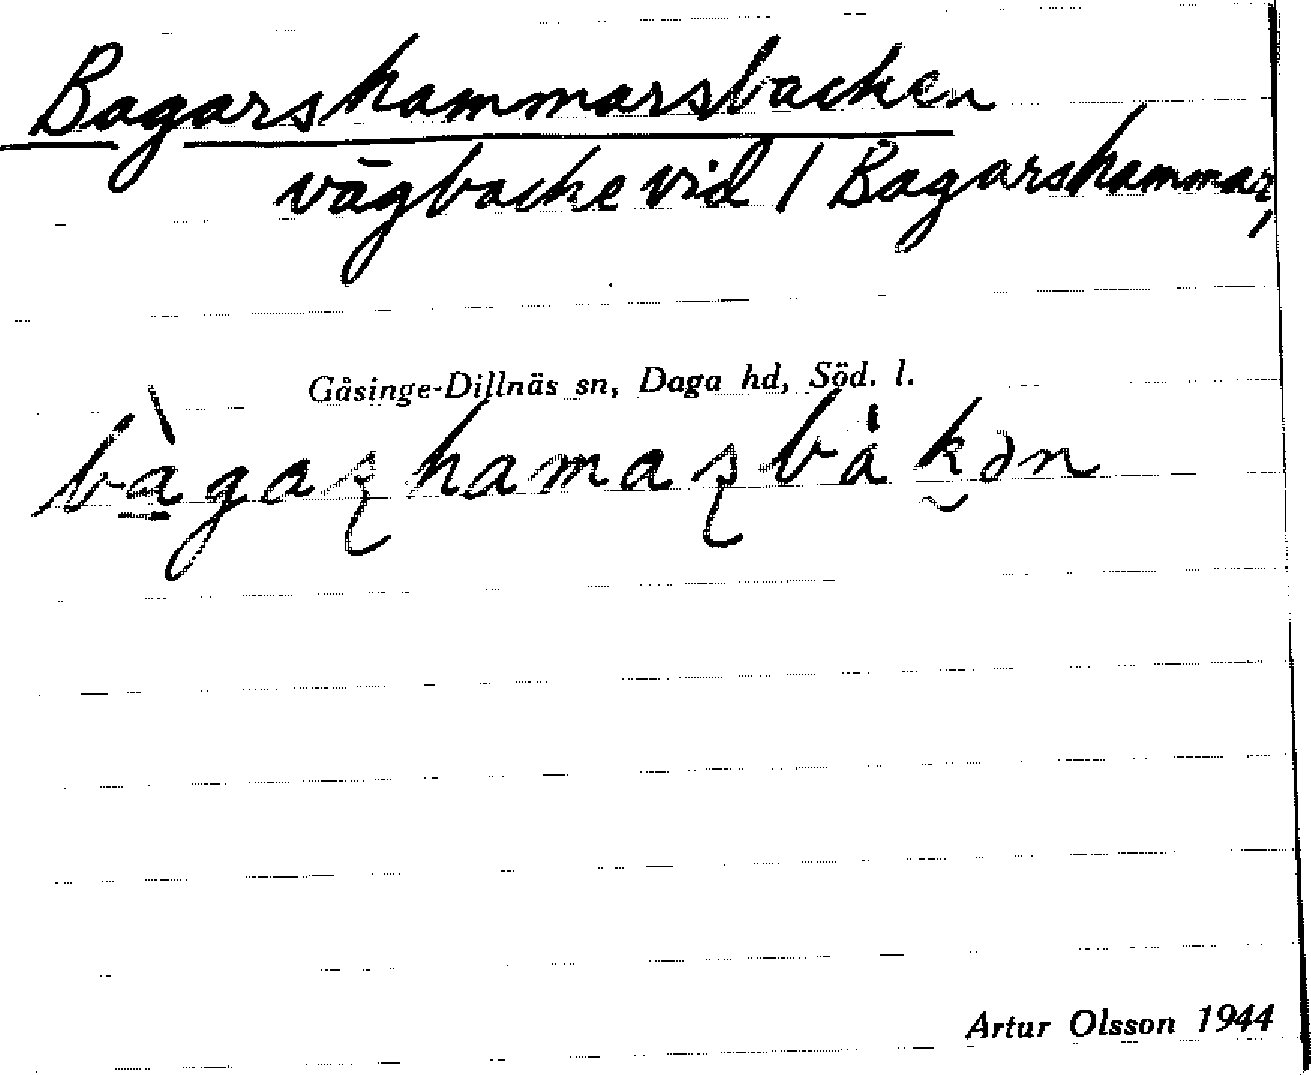 Bagarshammarsbacken
vägbacke vid / Bagarshammar,
Gåsinge-Dillnäs sn, Daga hd, Söd. l.
bàgaꞩhamaꞩbåkən
Artur Olsson 1944